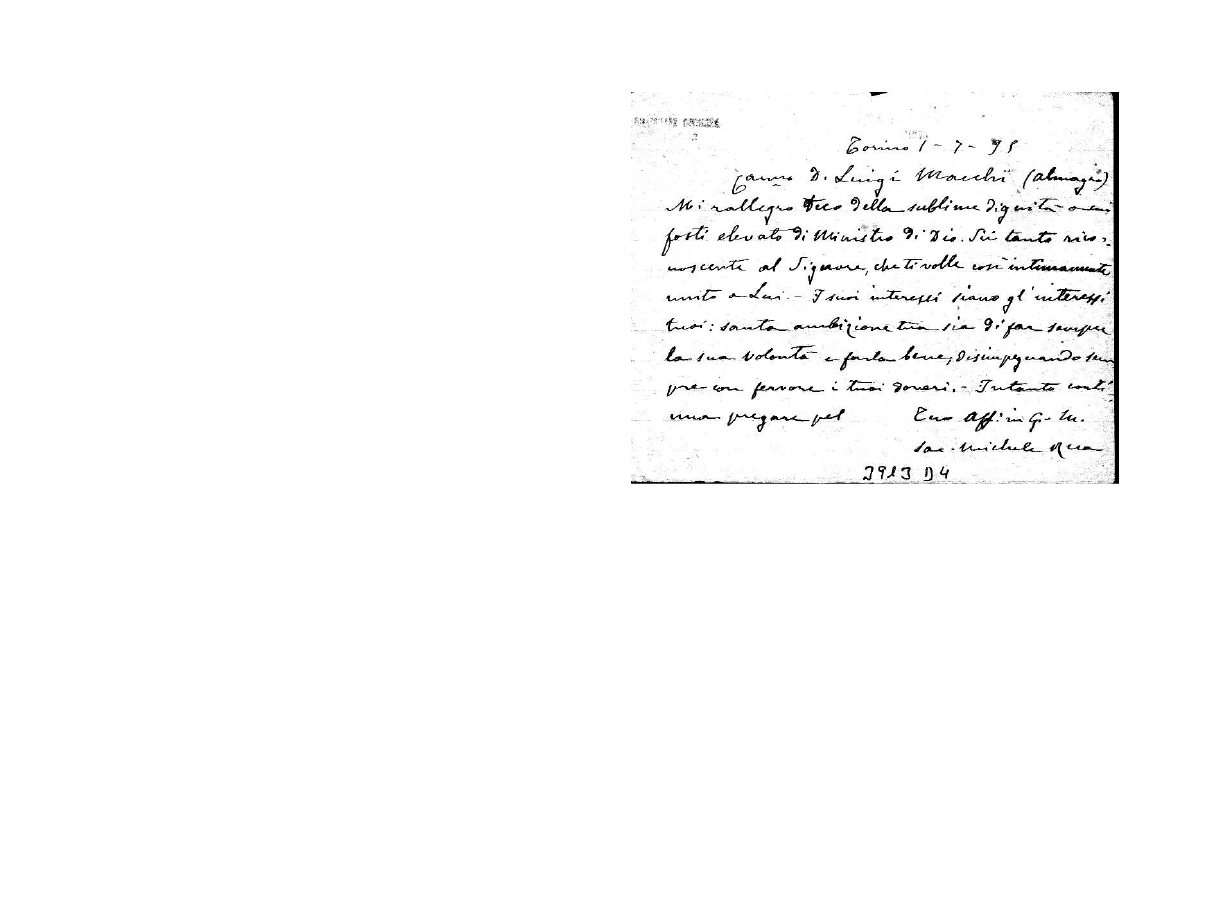 Torino 1 - 7 - 95
Carmo D. Luigi Macchi (Almagro)
Mi rallegro teco della sublime dignità a cui
fosti elevato di Ministro di Dio. Sii tanto rico=
noscente al Signore, che ti volle così intimamente
unito a Lui. - I suoi interessi siano gl'interessi
tuoi: santa ambizione tua sia di far sempre
la sua volontà e farla bene, disimpegnando sem
pre con fervore i tuoi doveri. - Intanto conti
nua pregare pel Tuo Aff. in G. M.
Sac. Michele Rua
3913 D4